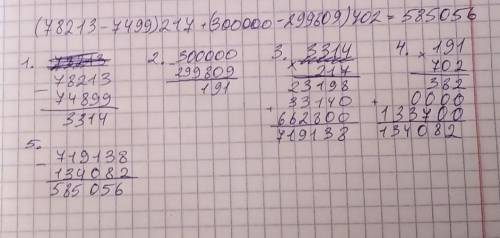 (78213-7499)217+(300000-299809)702=585056
1. 78213
- 78213
74899
3314
2. - 300000
299809
191
3. × 3314
217
23198
+ 33140
662800
719138
4. × 191
702
382
+ 0000
133700
134082
5. - 719138
134082
585056